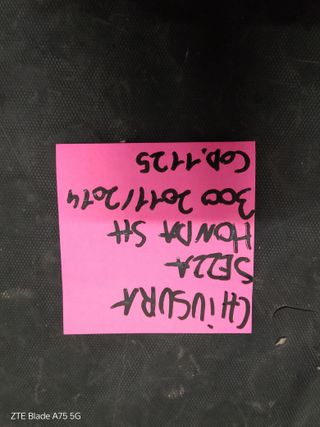 CHIUSURA
SELLA
HONDA SH
300 2011/2014
COD. 1125
ZTE Blade A75 5G